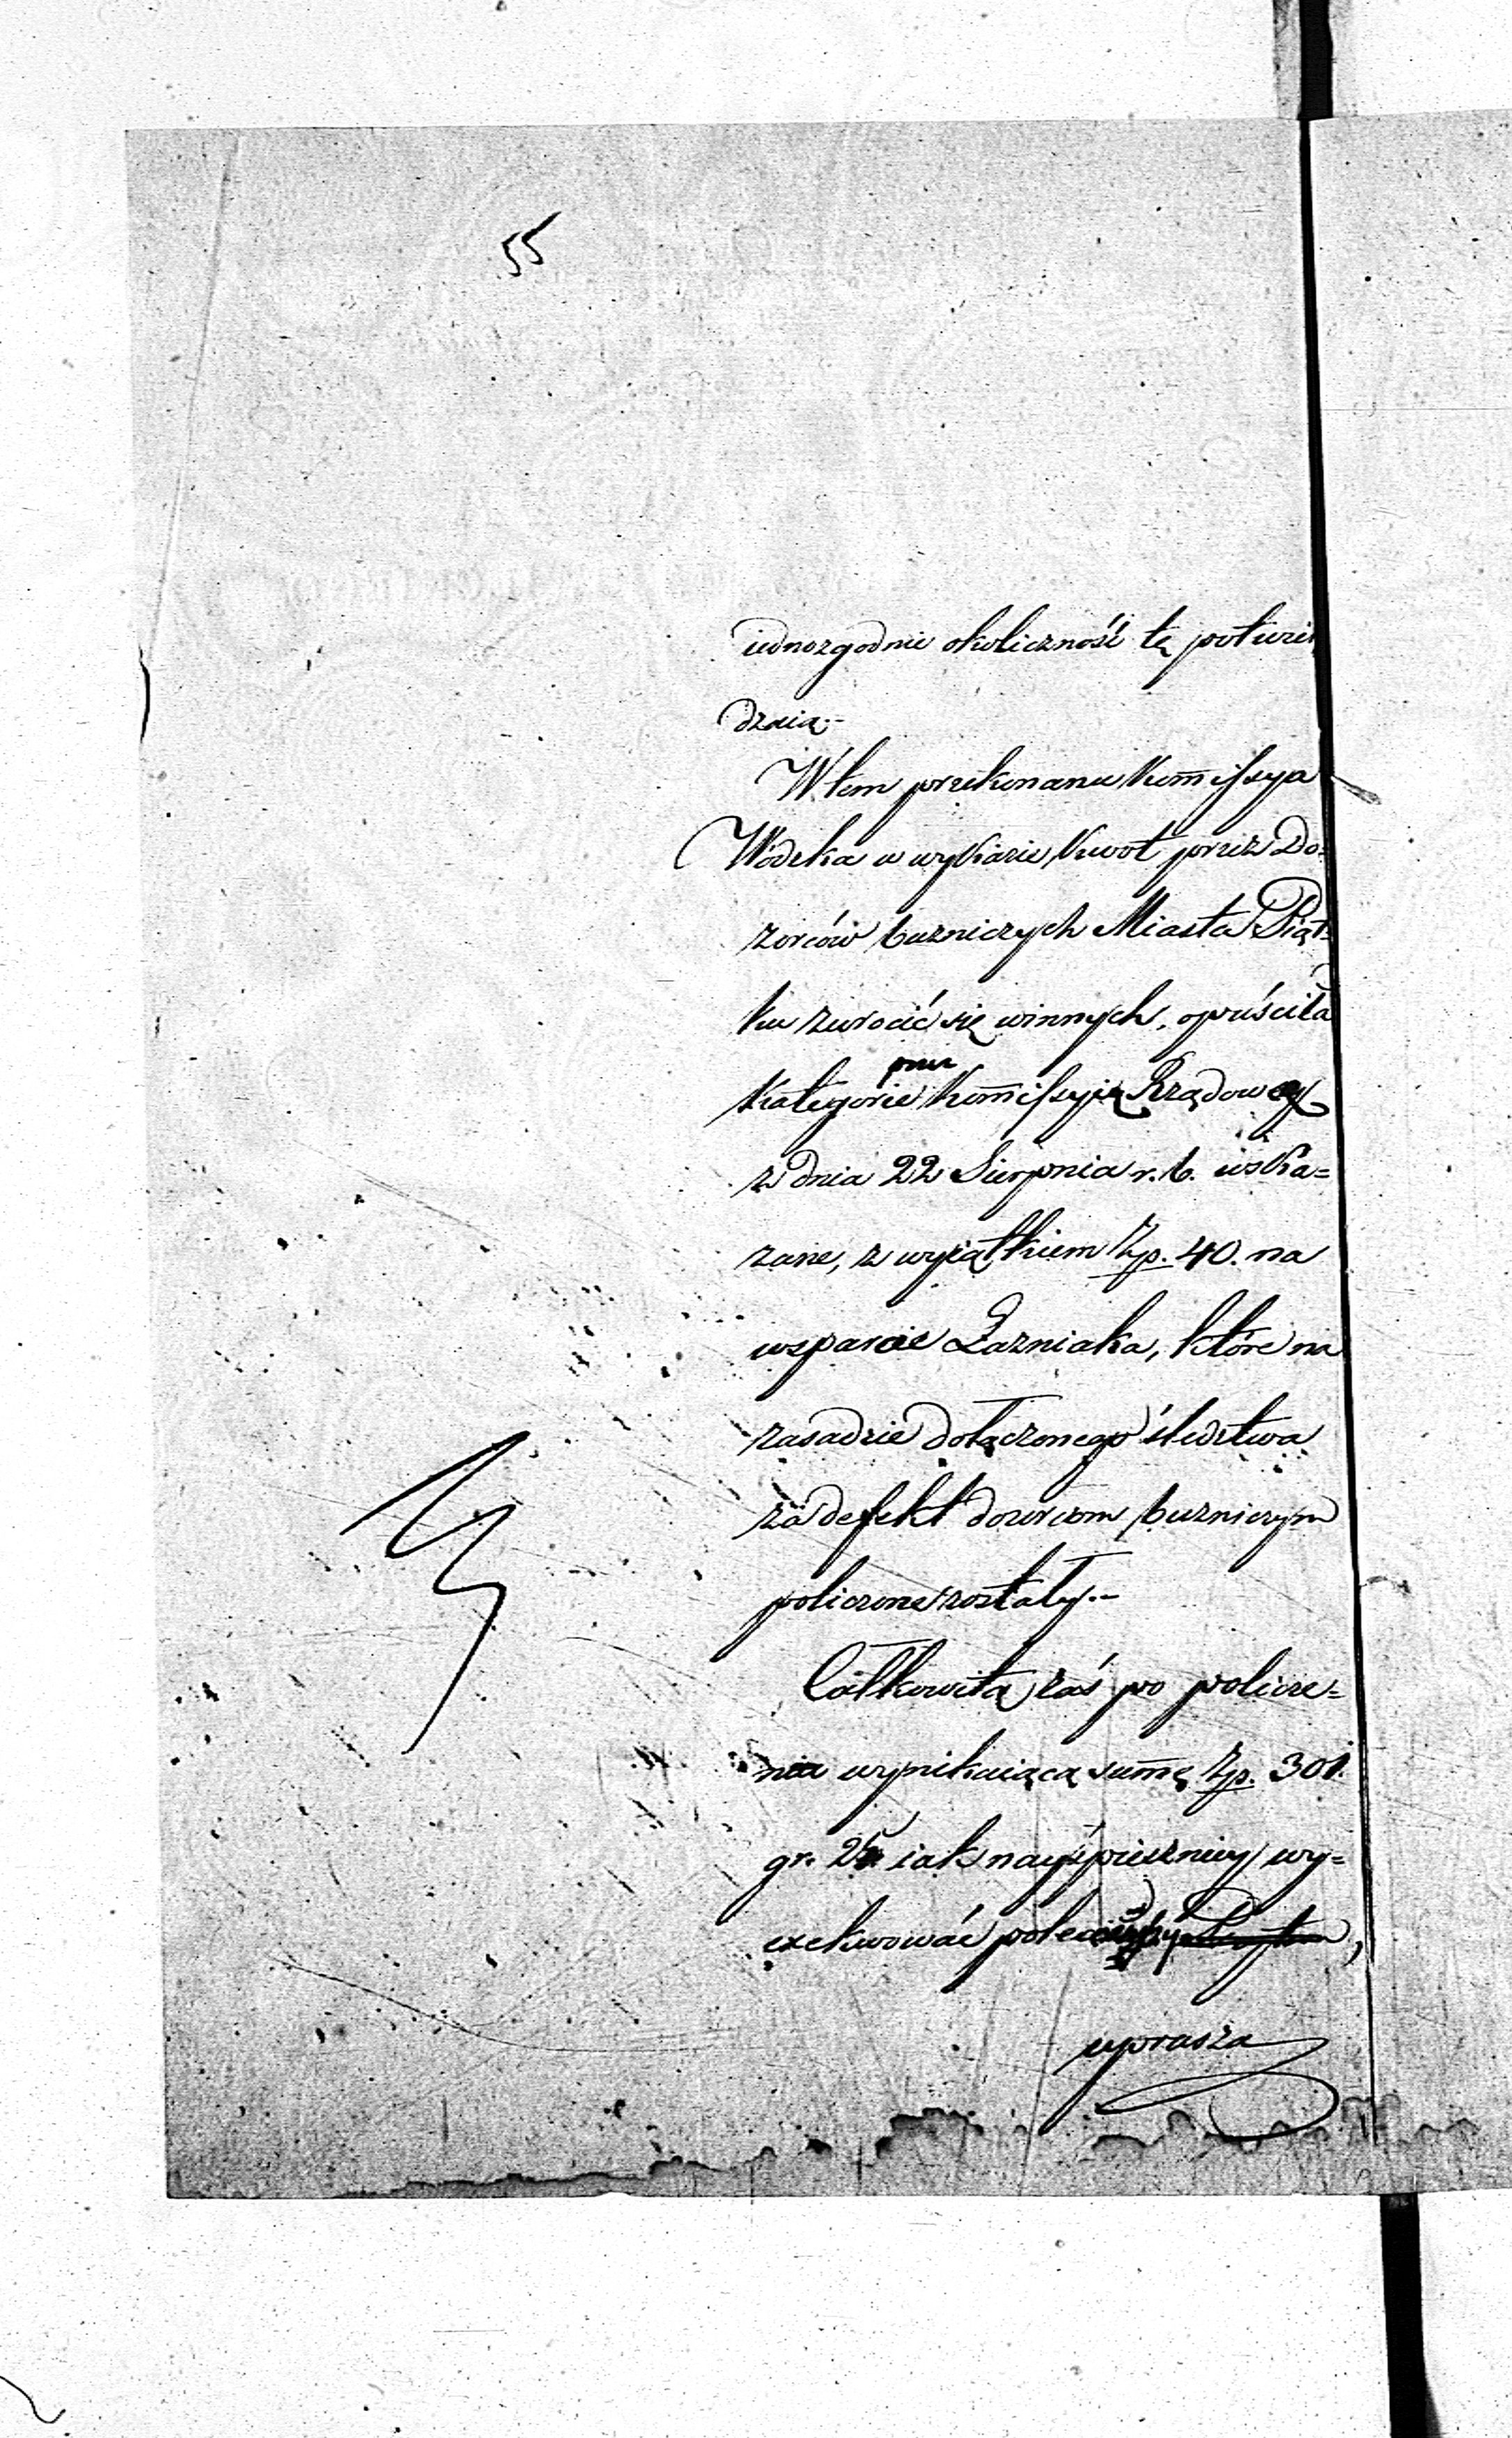 55
iednozgodnie okoliczność tę potwier
dzaią.-
W tem przekonaniu Kom̄issya
Wódzka w wykazie kwot przez Do=
zorców bużniczych Miasta Piąt=
ku zwrócić się winnych, opuściła
kategorie przez Kom̄issyią Rządowey
z dnia 22 Sierpnia r. b. wska=
zane, z wyiątkiem Zp. 40. na
wsparcie Łazniaka, które na
zasadzie dołączonego śledztwa
za defekt dozorcom bużniczym
policzone zostały.-
Całkowitą zaś po policze=
niu wynikaiącą sum̄ę Zp. 301.
gr. 25 iak nayśpieszniey wy=
exekwować
uprasza